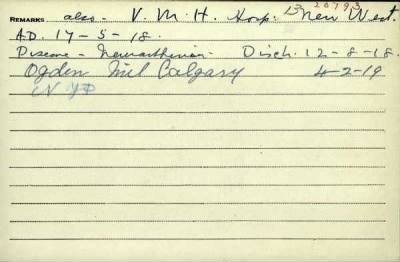 20793
REMARKS also - V. M. H. Hosp. New West.
A.D. 17-5-18.
Disease - Neurasthenia - Disch. 12-8-18.
Ogden Mil Calgary 4-2-19